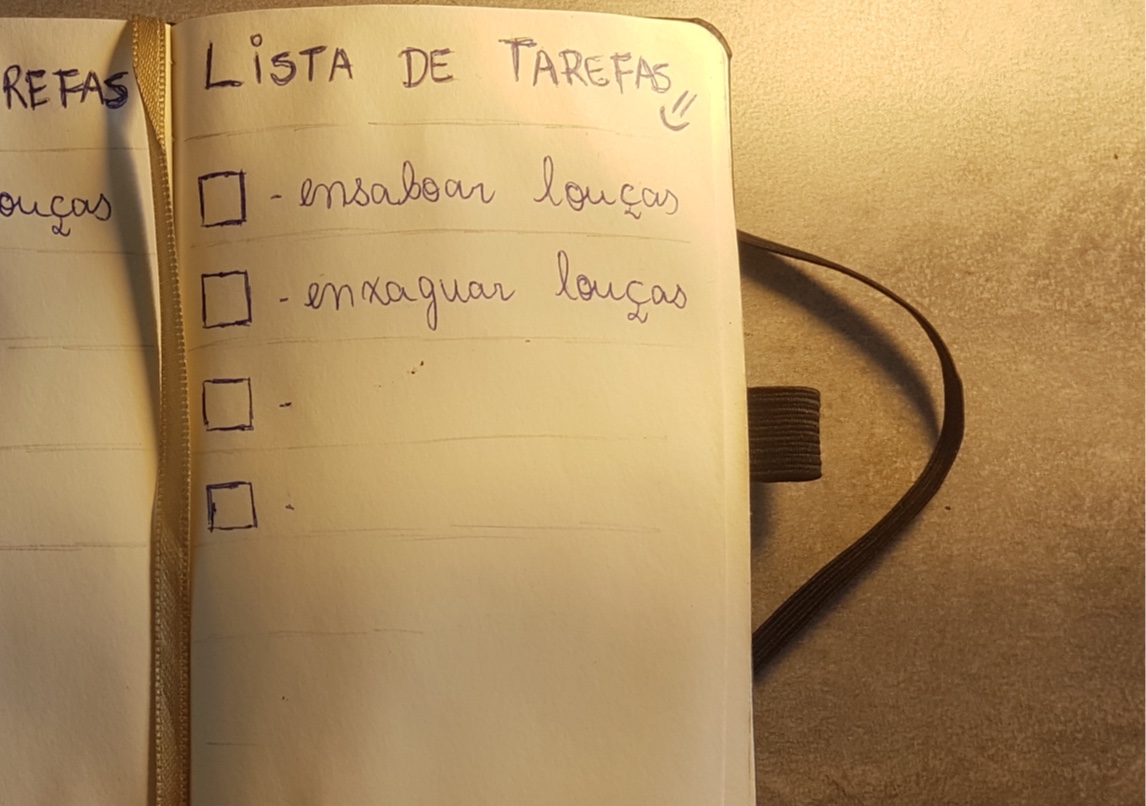 REFAS
ouças
LiSTA DE TAREFAS
- ensaboar louças
- enxaguar louças
-
-